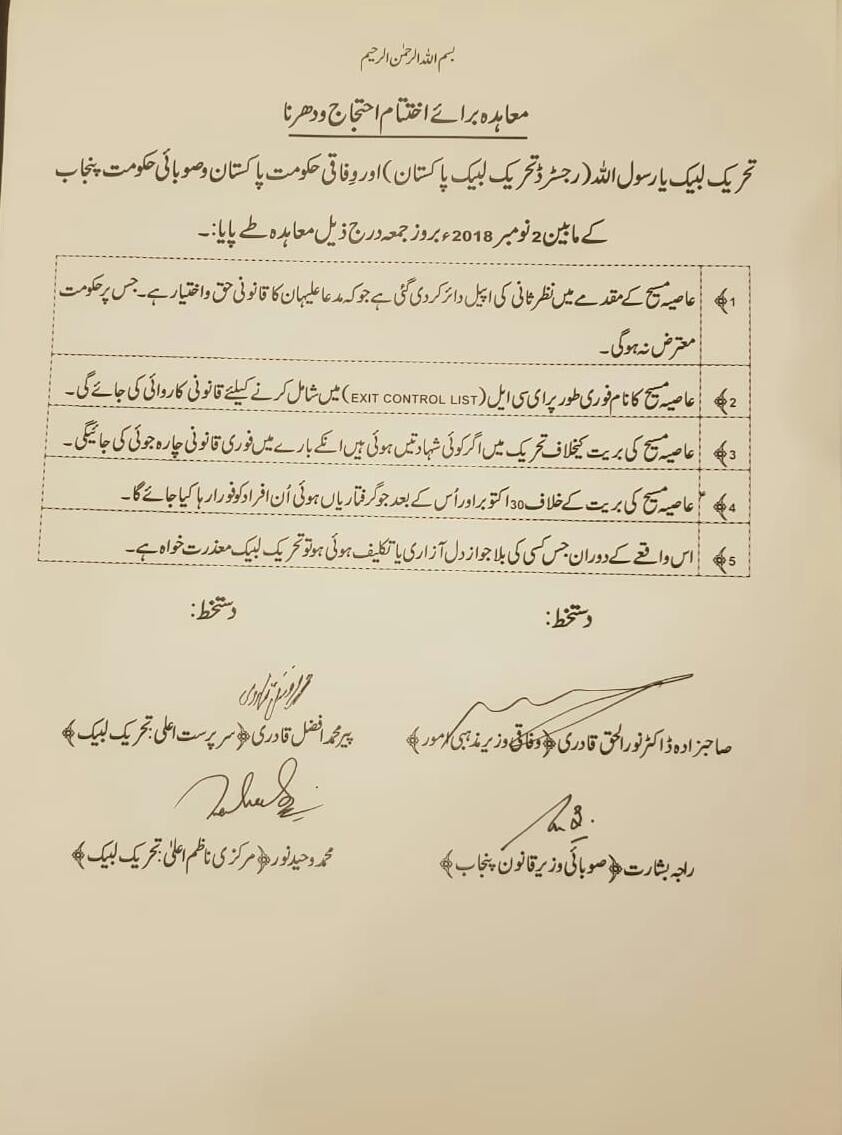 بسم اللہ الرحمٰن الرحیم
معاہدہ برائے اختتام احتجاج ودھرنا
تحریک لبیک یارسول اللہ (رجسٹرڈ تحریک لبیک پاکستان) اور وِفاقی حکومت پاکستان وصوبائی حکومت پنجاب
کے مابین 2 نومبر 2018ء بروز جمعہ درج ذیل معاہدہ طے پایا:۔
1﴾ عاصیہ مسیح کے مقدمے میں نظر ثانی کی اپیل دائر کردی گئی ہے جو کہ مدعا علیہان کا قانونی حق واختیار ہے۔ جس پر حکومت
معترض نہ ہوگی۔
2﴾ عاصیہ مسیح کا نام فوری طور پر ای سی ایل (EXIT CONTROL LIST) میں شامل کرنے کیلئے قانونی کاروائی کی جائے گی۔
3﴾ عاصیہ مسیح کی بریت کیخلاف تحریک میں اگر کوئی شہادتیں ہوئی ہیں انکے بارے میں فوری قانونی چارہ جوئی کی جائیگی۔
4﴾ عاصیہ مسیح کی بریت کے خلاف 30 اکتوبر اور اُس کے بعد جو گرفتاریاں ہوئی اُن افراد کو فورا رہا کیا جائے گا۔
5﴾ اس واقعے کے دوران جس کسی کی بلا جواز دل آزاری یا تکلیف ہوئی ہو تو تحریک لبیک معذرت خواہ ہے۔
دستخط: دستخط:
صاحبزادہ ڈاکٹر نورالحق قادری ﴿وفاقی وزیر مذہبی امور﴾ پیر محمد افضل قادری ﴿سرپرست اعلی: تحریک لبیک﴾
راجہ بشارت ﴿صوبائی وزیر قانون پنجاب﴾ محمد وحید نور ﴿مرکزی ناظم اعلیٰ: تحریک لبیک﴾